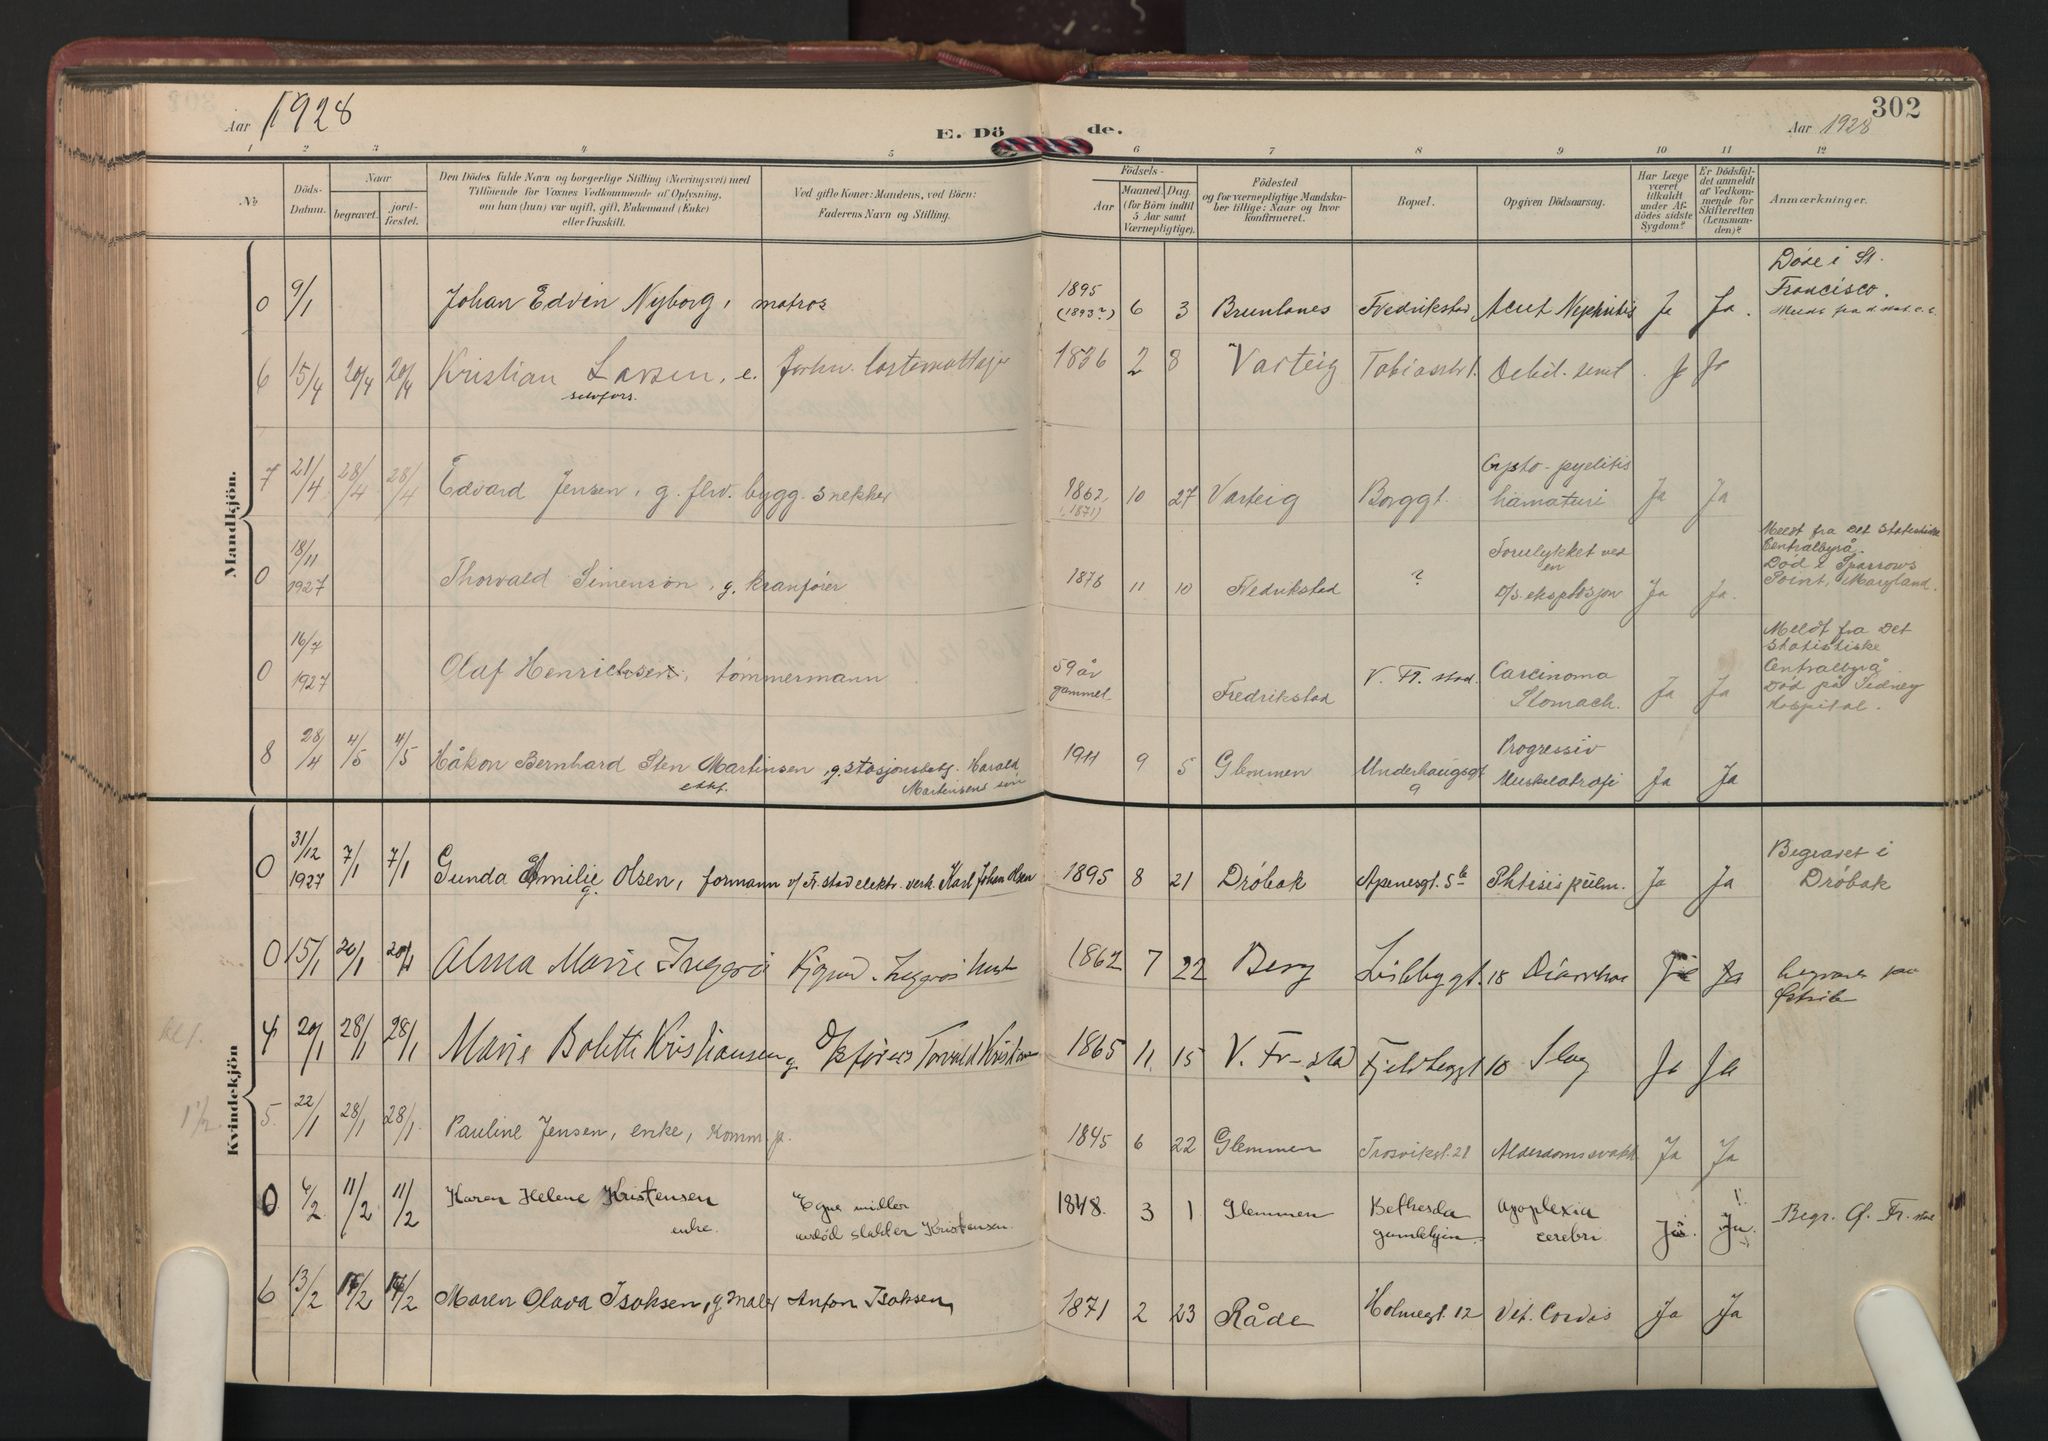 302
Aar 1928
E. Döde.
Aar 1928
1 2 3 4 5 6 7 8 9 10 11 12
No
Döds-Datum.
Naar
begravet.
jord-fæstet.
Den Dödes fulde Navn og borgerlige Stilling (Næringsvei) med
Tilföiende for Voxnes Vedkommende af Oplysning,
om han (hun) var ugift, gift, Enkemand (Enke)
eller Fraskilt.
Ved gifte Koner: Mandens, ved Börn:
Faderens Navn og Stilling.
Födsels-
Aar
Maaned. Dag.
(for Börn indtil
5 Aar samt
Værnepligtige).
Födested
og for værnepligtige Mandska-
ber tillige: Naar og hvor
konfirmeret.
Bopæl.
Opgiven Dödsaarsag.
Har Læge
været
tilkaldt
under Af-
dödes sidste
Sygdom?
Er Dödsfal-
det anmeldt
af Vedkom-
mende for
Skifteretten
(Lensman-
den)?
Anmærkninger.
Mandkjön.
0 9/1 Johan Edvin Nyborg, matros 1895 (1893?) 6 3 Brunlanes Fredrikstad Acut Nephritis Ja Ja. Döde i St. Francisco.
6 15/4 20/4 20/4 Kristian Larsen, e. selvfors. 1836 2 8 Varteig Debil. senil. Ja Ja
7 21/4 28/4 28/4 Edvard Jensen, g. flrv. bygg. snekker 1862 (1871) 10 27 Varteig Borggt. Cysto-pyelitis hämaturi Ja Ja
0 18/11 1927 Thorvald Simenson, g. kranfører 1876 11 10 Fredrikstad ? Forulykket ved en o/s. eksplosjon Ja Ja. Meldt fra Det Statistiske Centralbyrå. Død i Sparrows Point, Maryland.
0 16/7 1927 Olaf Henrichsen, tømmermann 59 år gammel Fredrikstad V. Fr. stad. Carcinoma Stomach. Ja Ja Meldt fra Det Statistiske Centralbyrå Død på Sidney Hospital.
8 28/4 4/5 4/5 Håkon Bernhard Sten Martinsen, g. stasjonsbetj. Harald Martinsens søn 1911 9 5 Glemmen Underhaugsgt 9 Progressiv Muskelatrofi Ja Ja
Kvindekjön
0 31/12 1927 7/1 7/1 Gunda Emilie Olsen, g. formann v/ Fr.stad elektr. verk Karl Johan Olsen 1895 8 21 Dröbak Apenesgt. 5b Phtisis pulm. Ja Ja Begravet i Dröbak
0 15/1 20/1 20/1 Alma Marie 1862 7 22 Berg 18 Diarrhoe Ja Ja
kl 1.
4 20/1 28/1 28/1 Marie Bolette Kristiansen g. Torvald Kristiansen 1865 11 15 V. Fr-stad Fjeldbeggt 10 Slag Ja Ja
1 1/2
5. 22/1 28/1 28/1. Pauline Jensen, enke, komm.p. 1845 6 22 Glemmen Trosvikgt. 28 Alderdomssvakh Ja Ja
0 6/2 11/2 11/2 Karen Helene Kristensen enke Egne midler avdöd slakter Kristensen. 1848. 3 1 Glemmen Bethesda gamlehjem. Apoplexia cerebri. Ja. Ja. Begr. Ø. Fr. stad
6 13/2 Maren Olava Isaksen, g. maler Anton Isaksen, 1871 2 23 Råde Holmegt. 12 Vit. Cordis Ja Ja